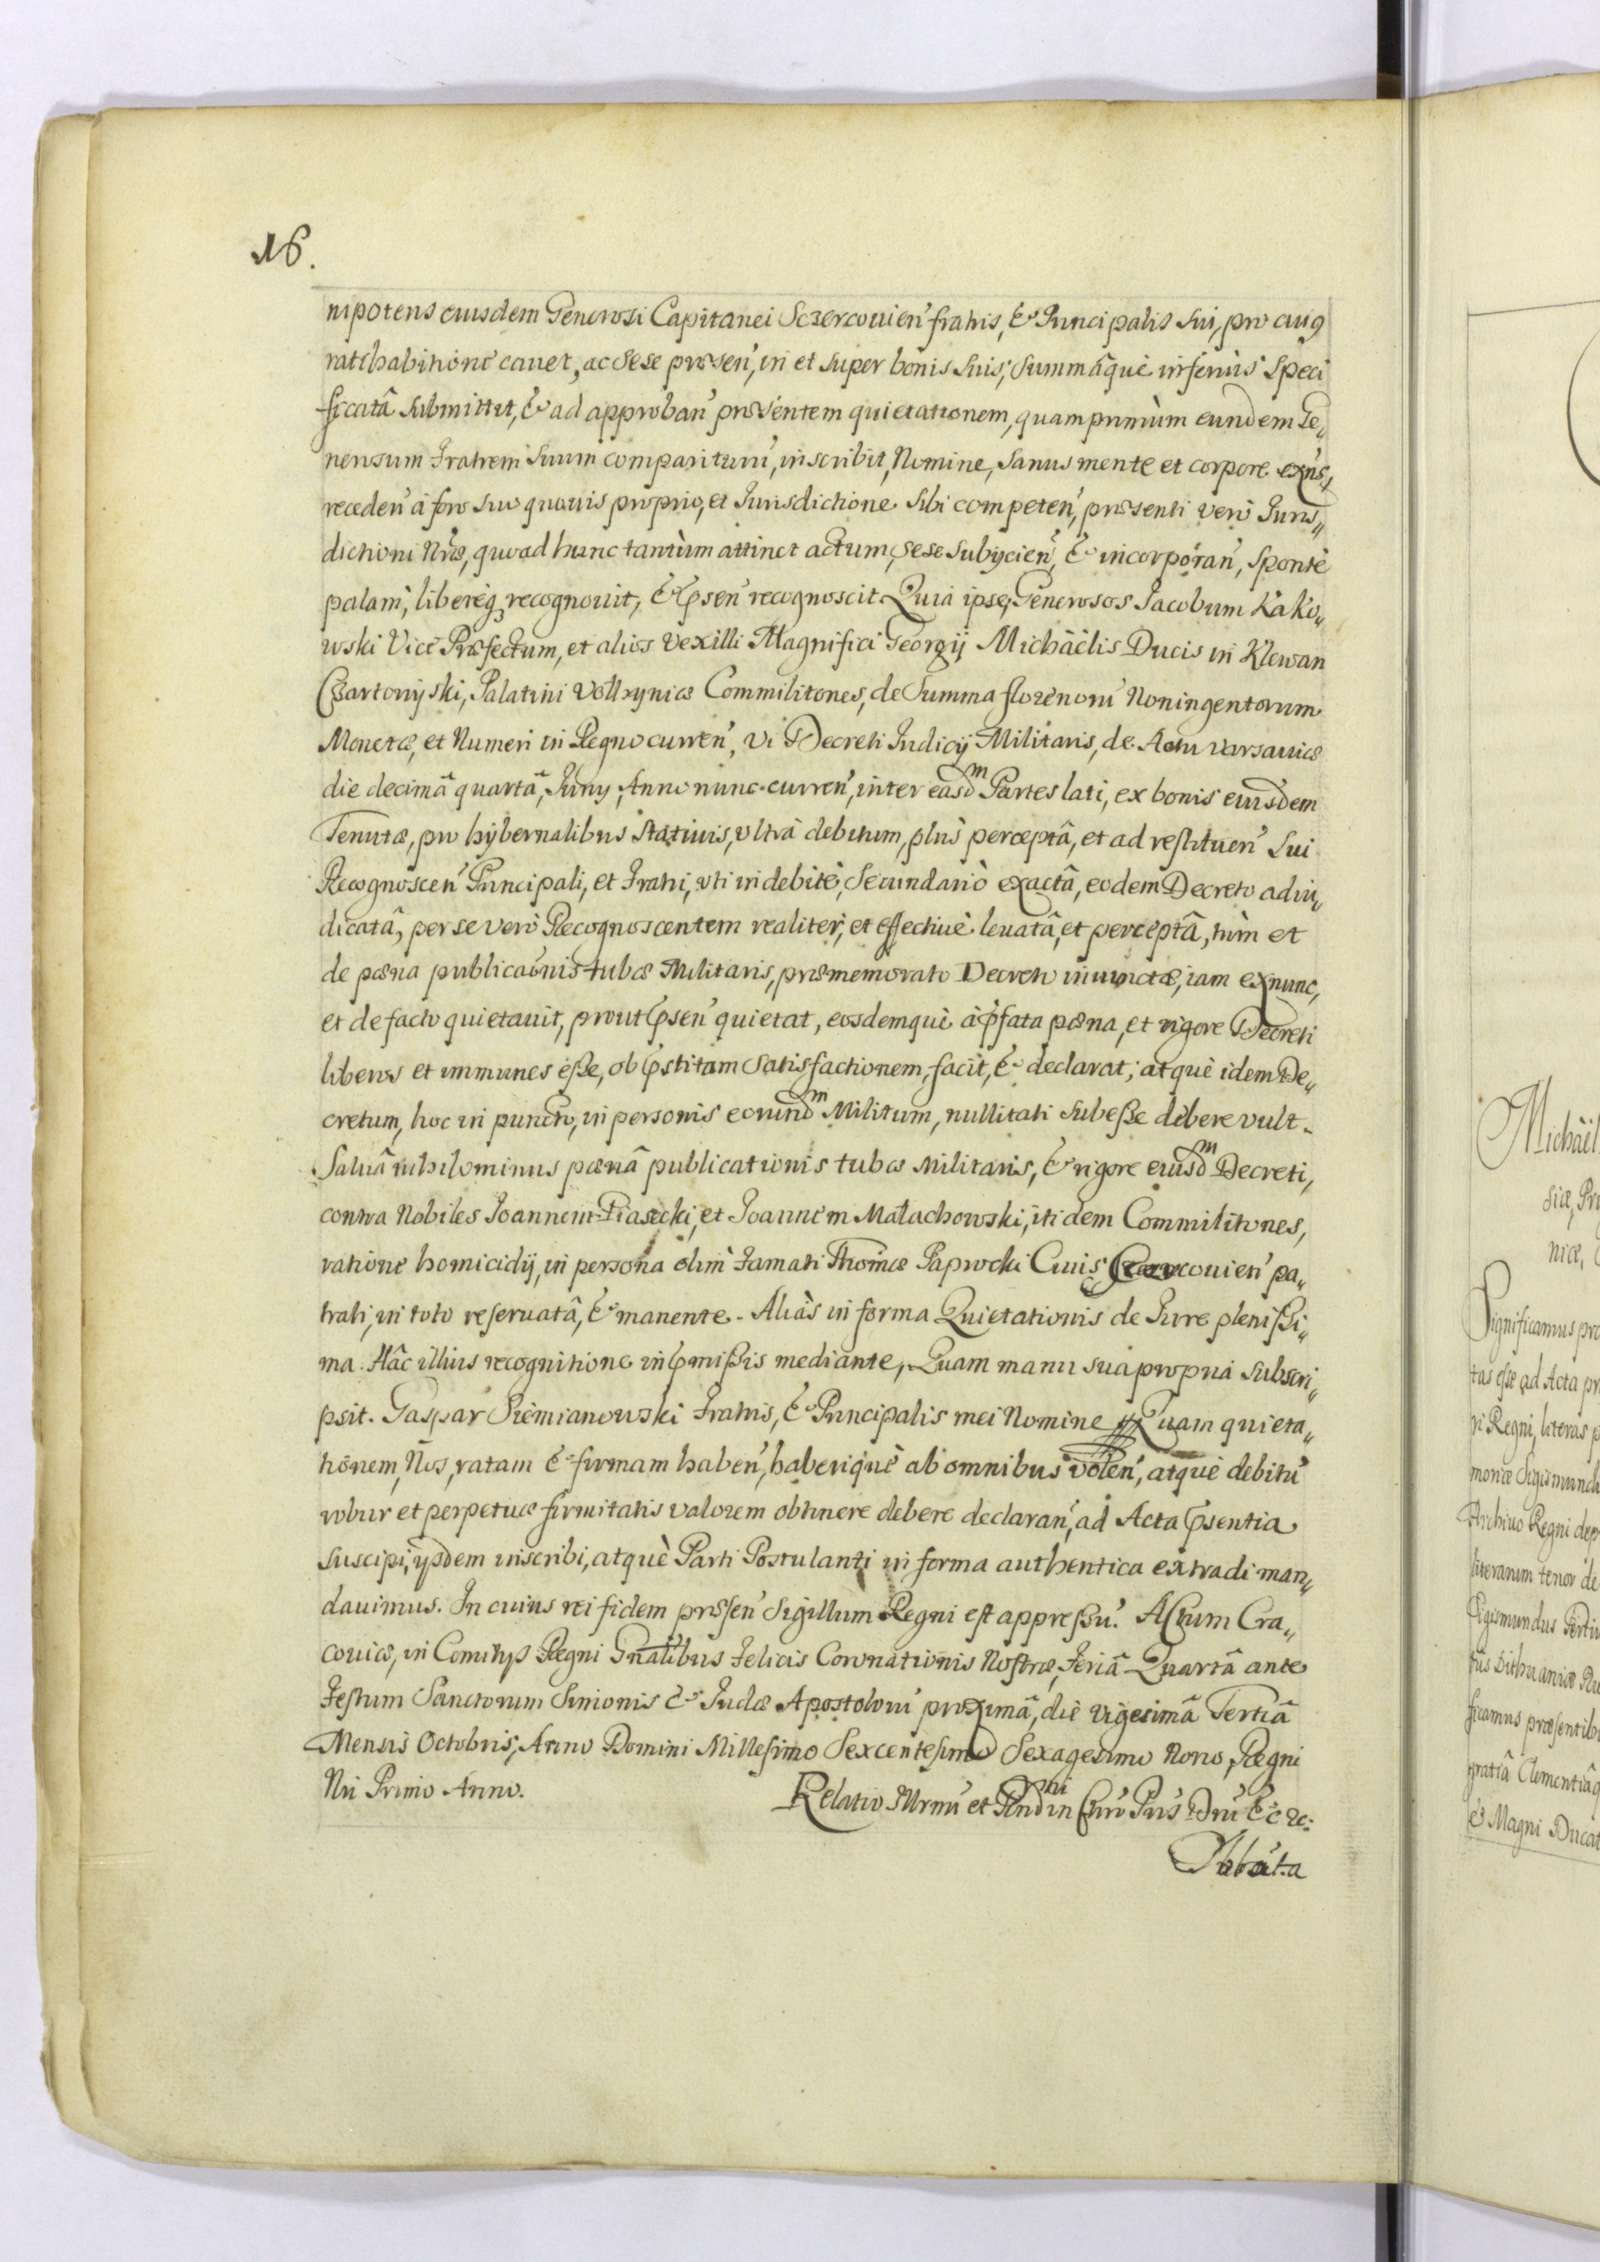 16.
nipotens eiusdem Generosi Capitanei Sczercouien̄ fratris, & Principalis sui, pro cuiq
ratihabitione cauet, ac sese præsen̄, in et super bonis suis, summâque inferiùs speci
ficatâ submittit, & ad approban̄ præsentem quietationem, quamprimùm eundem Ge„
nerosum Fratrem suum compariturū, inscribit, Nomine, sanus mente et corpore exn̄s,
receden̄ à foro suo quouis proprio, et Jurisdictione sibi competen̄, præsenti verò Juris„
dictioni Nr̄æ, quoad hunc tantùm attinet actum, sese subijcien̄, & incorporan̄, spontè
palam, liberèq3 recognouit, & Psen̄ recognoscit. Quia ipse, Generosos Jacobum Kako„
wski Vice Præfectum, et alios Vexilli Magnifici Georgij Michaëlis Ducis in Klewan
Czartoryski, Palatini Volhyniæ Commilitones, de Summa florenorū Noningentorum
Monetæ, et Numeri in Regno curren̄, vi Decreti Judicij Militaris, de Actu Varsauiæ
die decimâ quartâ, Juny, Anno nunc curren̄, inter easdm Partes lati, ex bonis eiusdem
Tenutæ, pro hybernalibus statiuis, vltrà debitum, plus perceptâ, et ad restituen̄ sui
Recognoscen̄ Principali, et Fratri, vti indebitè, secundariò exactâ, eodem Decreto adiu„
dicatâ, per se verò Recognoscentem realiter, et effectiuè leuatâ, et perceptâ, tùm et
de pœna publicaōnis tubæ Militaris, præmemorato Decreto iniunctæ, iam exnunc,
et de facto quietauit, prout Psen̄ quietat, eosdemque à pfata pœna, et rigore Decreti
liberos et immunes esse, ob Pstitam satisfactionem, facit, & declarat, atquè idem De„
cretum, hoc in puncto, in personis eorundm Militum, nullitati subesse debere vult.
Saluâ nihilominus pœnâ publicationis tubæ Militaris, & rigore eiusdm Decreti,
contra Nobiles Joannem Piasecki, et Joannem Małachowski, itidem Commilitones,
ratione homicidij, in persona olim Famati Thomæ Paprocki Ciuis Sczercouien̄ pa„
trati, in toto reseruatâ, & manente. Aliàs in forma Quietationis de Jure plenissi„
ma. Hâc illius recognitione in Pmissis mediante, Quam manu sua propria subscri„
psit. Gaspar Siemianowski Fratris, & Principalis mei Nomine Quam quieta„
tionem, Nos, ratam & firmam haben̄, haberiquè ab omnibus volen̄, atquè debitū
robur et perpetuæ firmitatis valorem obtinere debere declaran̄, ad Acta Psentia
suscipi, ijsdem inscribi, atquè Parti Postulanti in forma authentica extradi man„
dauimus. In cuius rei fidem præsen̄ Sigillum Regni est appressū. Actum Cra„
couiæ, in Comitys Regni Gn̄alibus Felicis Coronationis Nostræ, Feriâ Quartâ ante
Festum Sanctorum Simonis & Judæ Apostolorū proximâ, die Vigesimâ Tertiâ
Mensis Octobris, Anno Domini Millesimo Sexcentesimo Sexagesimo Nono, Regni
Nri Primo Anno.
Relatio Illrmi et Rndmi in Chro Pris Dni &c rc: